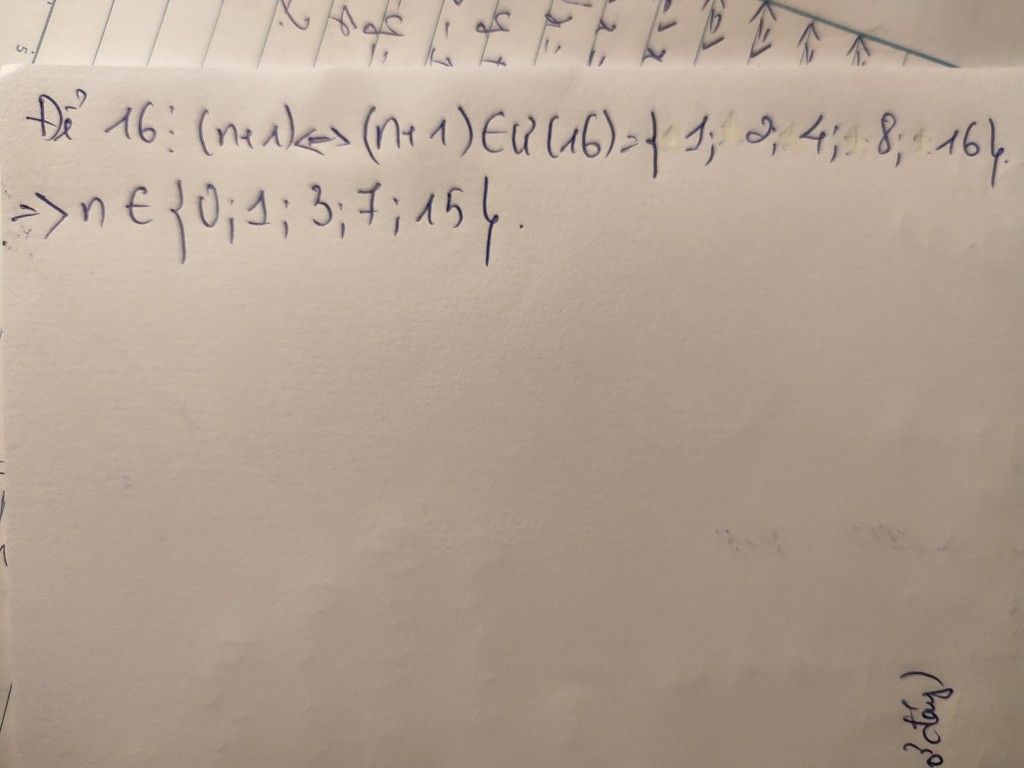 Để 16 ⋮ (n+1) <=> (n+1) ∈ Ư(16) = { 1; 2; 4; 8; 16}.
=> n ∈ {0; 1; 3; 7; 15}.
đây)